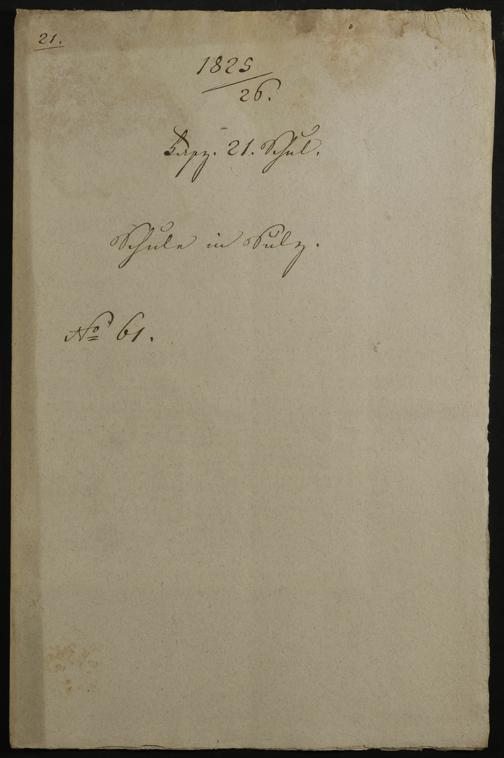 21.
1825
26.
21. Schul.
Schule in Sulz.
No 61.